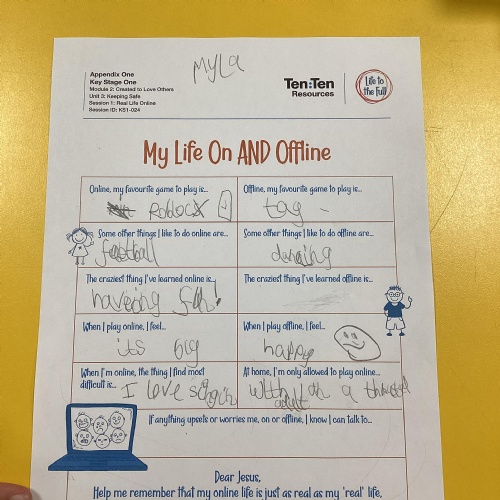 Myla
Appendix One
Key Stage One
Module 2: Created to Love Others
Unit 3: Keeping Safe
Session 1: Real Life Online
Session ID: KS1-024
Ten:Ten
Resources
Life to
the Full
My Life On AND Offline
Online, my favourite game to play is...
Roblocx
Offline, my favourite game to play is...
tag
Some other things I like to do online are...
football
Some other things I like to do offline are...
The craziest thing I've learned online is...
haveing fun!
The craziest thing I've learned offline is...
When I play online, I feel...
its big
When I play offline, I feel...
happy
When I'm online, the thing I find most
difficult is...
I love
At home, I'm only allowed to play online...
with adult a
If anything upsets or worries me, on or offline, I know I can talk to...
Dear Jesus,
Help me remember that my online life is just as real as my 'real' life,